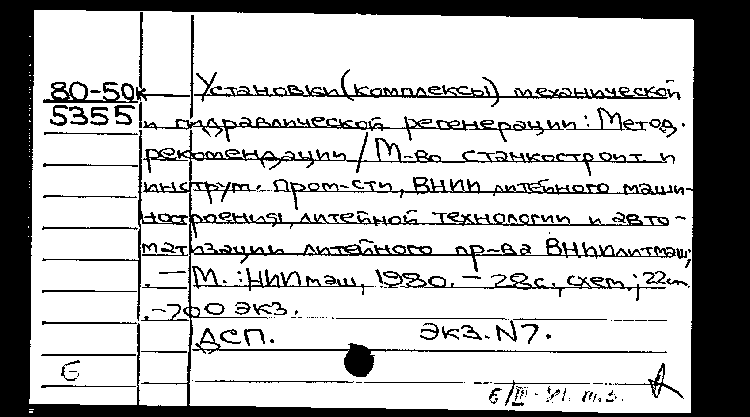 80-50к
5355
Установки (комплексы) механической
и гидравлической регенерации: Метод.
рекомендации / М-во станкостроит. и
инструм. пром-сти, ВНИИ литейного маши-
ностроения, литейной технологии и авто-
матизации литейного пр-ва ВНИИлитмаш,
.— М.: НИИмаш, 1980. — 28с., схем.; 22см
.-700 экз.
ДСП. экз. N7.
Б